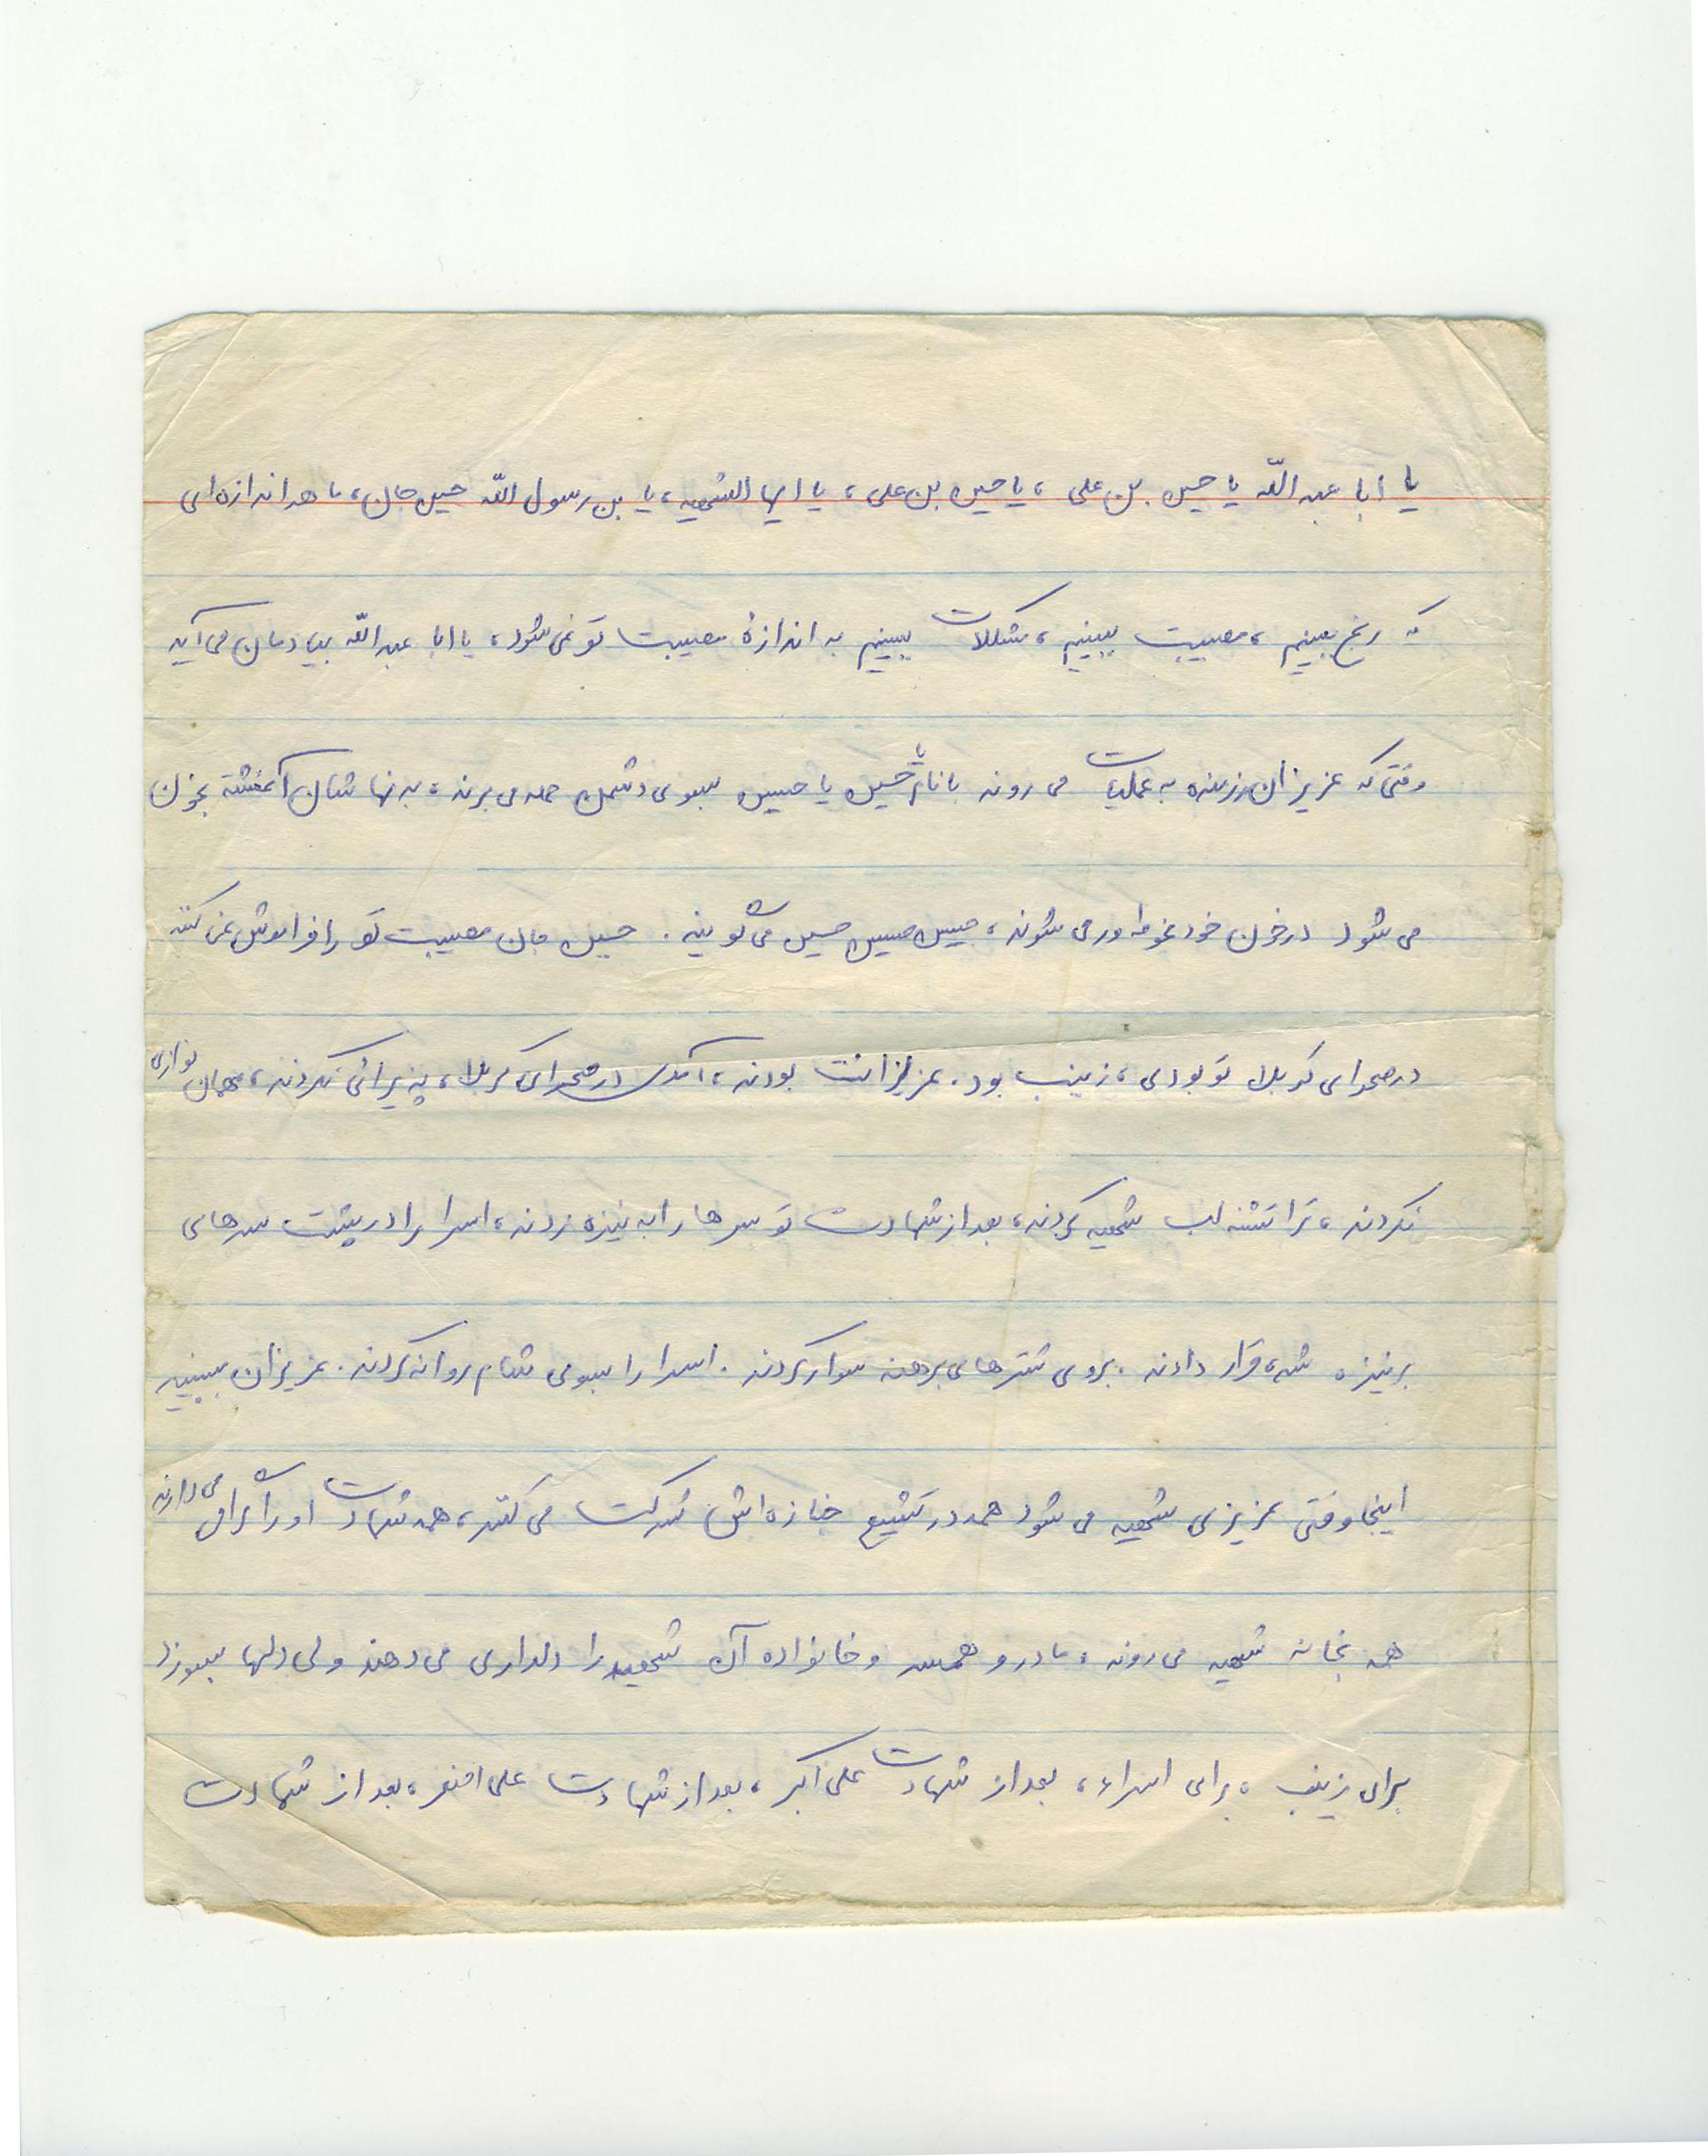 یا ابا عبدالله یا حسین بن علی ، یا حسین بن علی ، یا ایها الشهید ، یا بن رسول الله حسین جان ، ما هر اندازه ای
که رنج ببینیم ، مصیبت ببینیم ، مشکلات ببینیم به اندازهٔ مصیبت تو نمی شود ، یا ابا عبدالله بیادمان می آید
وقتی که عزیزان رزمنده به عملیات می روند با نام یا حسین یا حسین بسوی دشمن حمله می برند ، بدنهاشان آغشته بخون
می شود در خون خود غوطه ور می شوند ، حسین حسین حسین می گویند . حسین جان مصیبت تو را فراموش نمی کنند
در صحرای کربلا تو بودی ، زینب بود . عزیزانت بودند ، آمدی در صحرای کربلا ، پذیرائی نکردند ، مهمان نوازی
نکردند ، ترا تشنه لب شهید کردند ، بعد از شهادت تو سرها را به نیزه زدند ، اسرا را در پشت سرهای
بر نیزه شده قرار دادند . بروی شترهای برهنه سوار کردند . اسرا را بسوی شام روانه کردند . عزیزان ببینید
اینجا وقتی عزیزی شهید می شود همه در تشییع جنازه اش شرکت می کنند ، همه شهادت او را گرامی می دارند
همه بخانه شهید می روند ، مادر و همسر و خانواده آن شهید را دلداری می دهند ولی دلها بسوزد
برای زینب ، برای اسراء ، بعد از شهادت علی اکبر ، بعد از شهادت علی اصغر ، بعد از شهادت